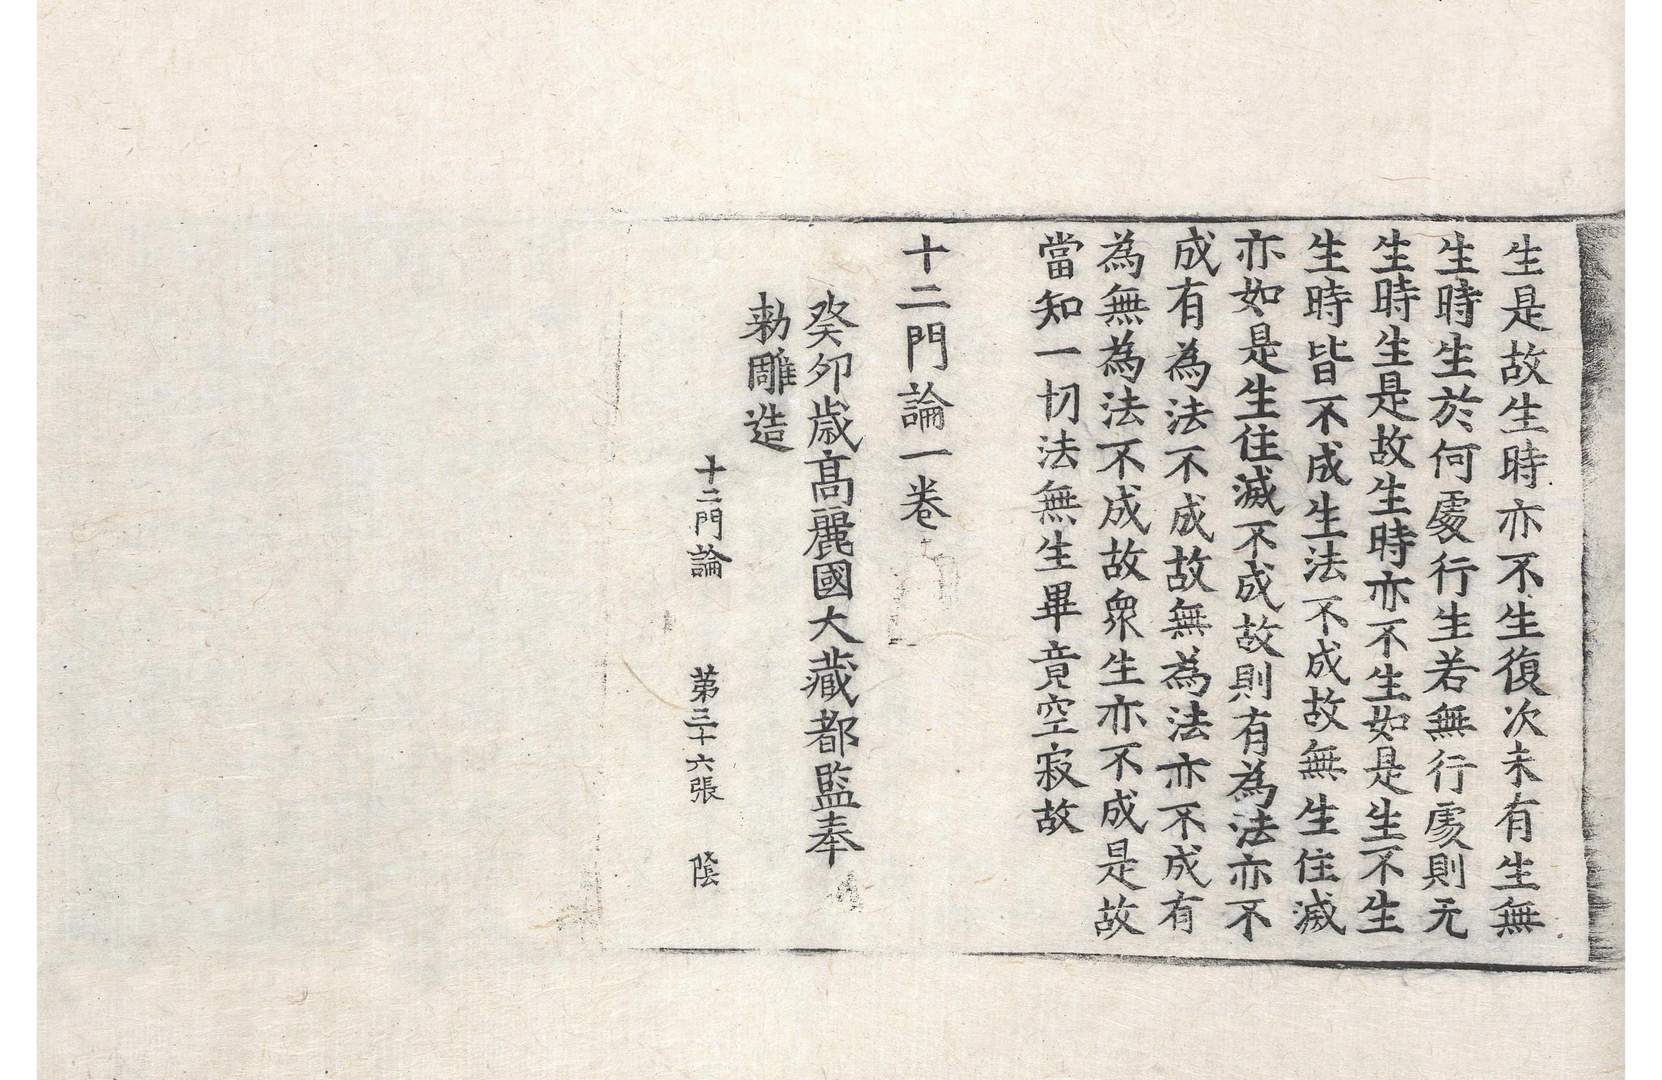 生是故生時亦不生復次未有生無
生時生於何處行生若無行處則无
生時生是故生時亦不生如是生不生
生時皆不成生法不成故無生住滅
亦如是生住滅不成故則有為法亦不
成有為法不成故無為法亦不成有
為無為法不成故衆生亦不成是故
當知一切法無生畢竟空寂故
十二門論一卷
癸卯歲高麗國大藏都監奉
勑雕造
十二門論 第三十六張 蔭